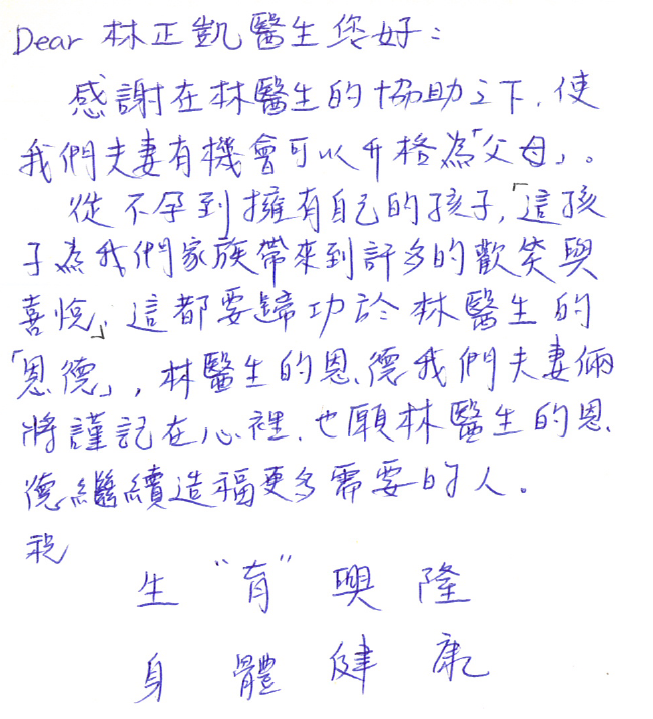 Dear 林正凱醫生您好：
感謝在林醫生的協助之下，使
我們夫妻有機會可以升格為「父母」。
從不孕到擁有自己的孩子，「這孩
子為我們家族帶來到許多的歡笑與
喜悅」，這都要歸功於林醫生的
「恩德」，林醫生的恩德我們夫妻倆
將謹記在心裡，也願林醫生的恩
德繼續造福更多需要的人。
祝
生“育”興隆
身體健康